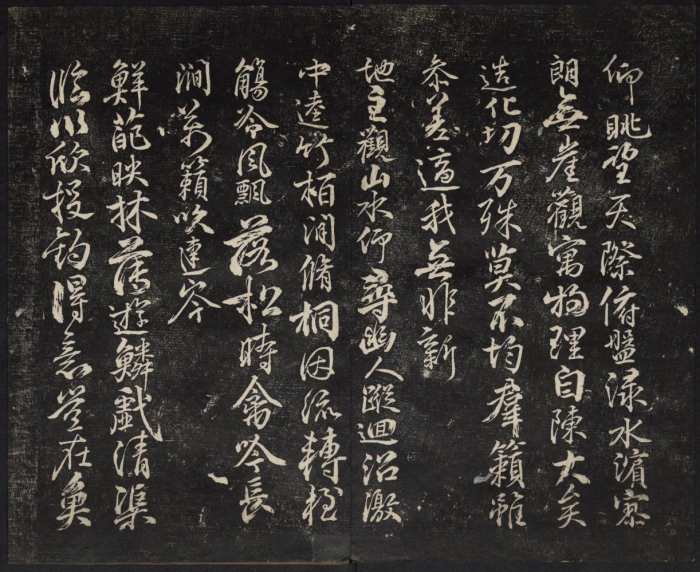 仰眺望天際俯盤淥水濱寥
朗無崖觀寓物理自陳大矣
造化切万殊莫不均群籟雖
参差適我無非新
地主觀山水仰尋幽人蹤迴沼激
中逵竹柏間脩桐因流轉輕
觴谷風飄落松時禽吟長
澗万籟吹連岑
鮮葩映林薄遊鱗戲清渠
臨川欣投釣得意豈在魚